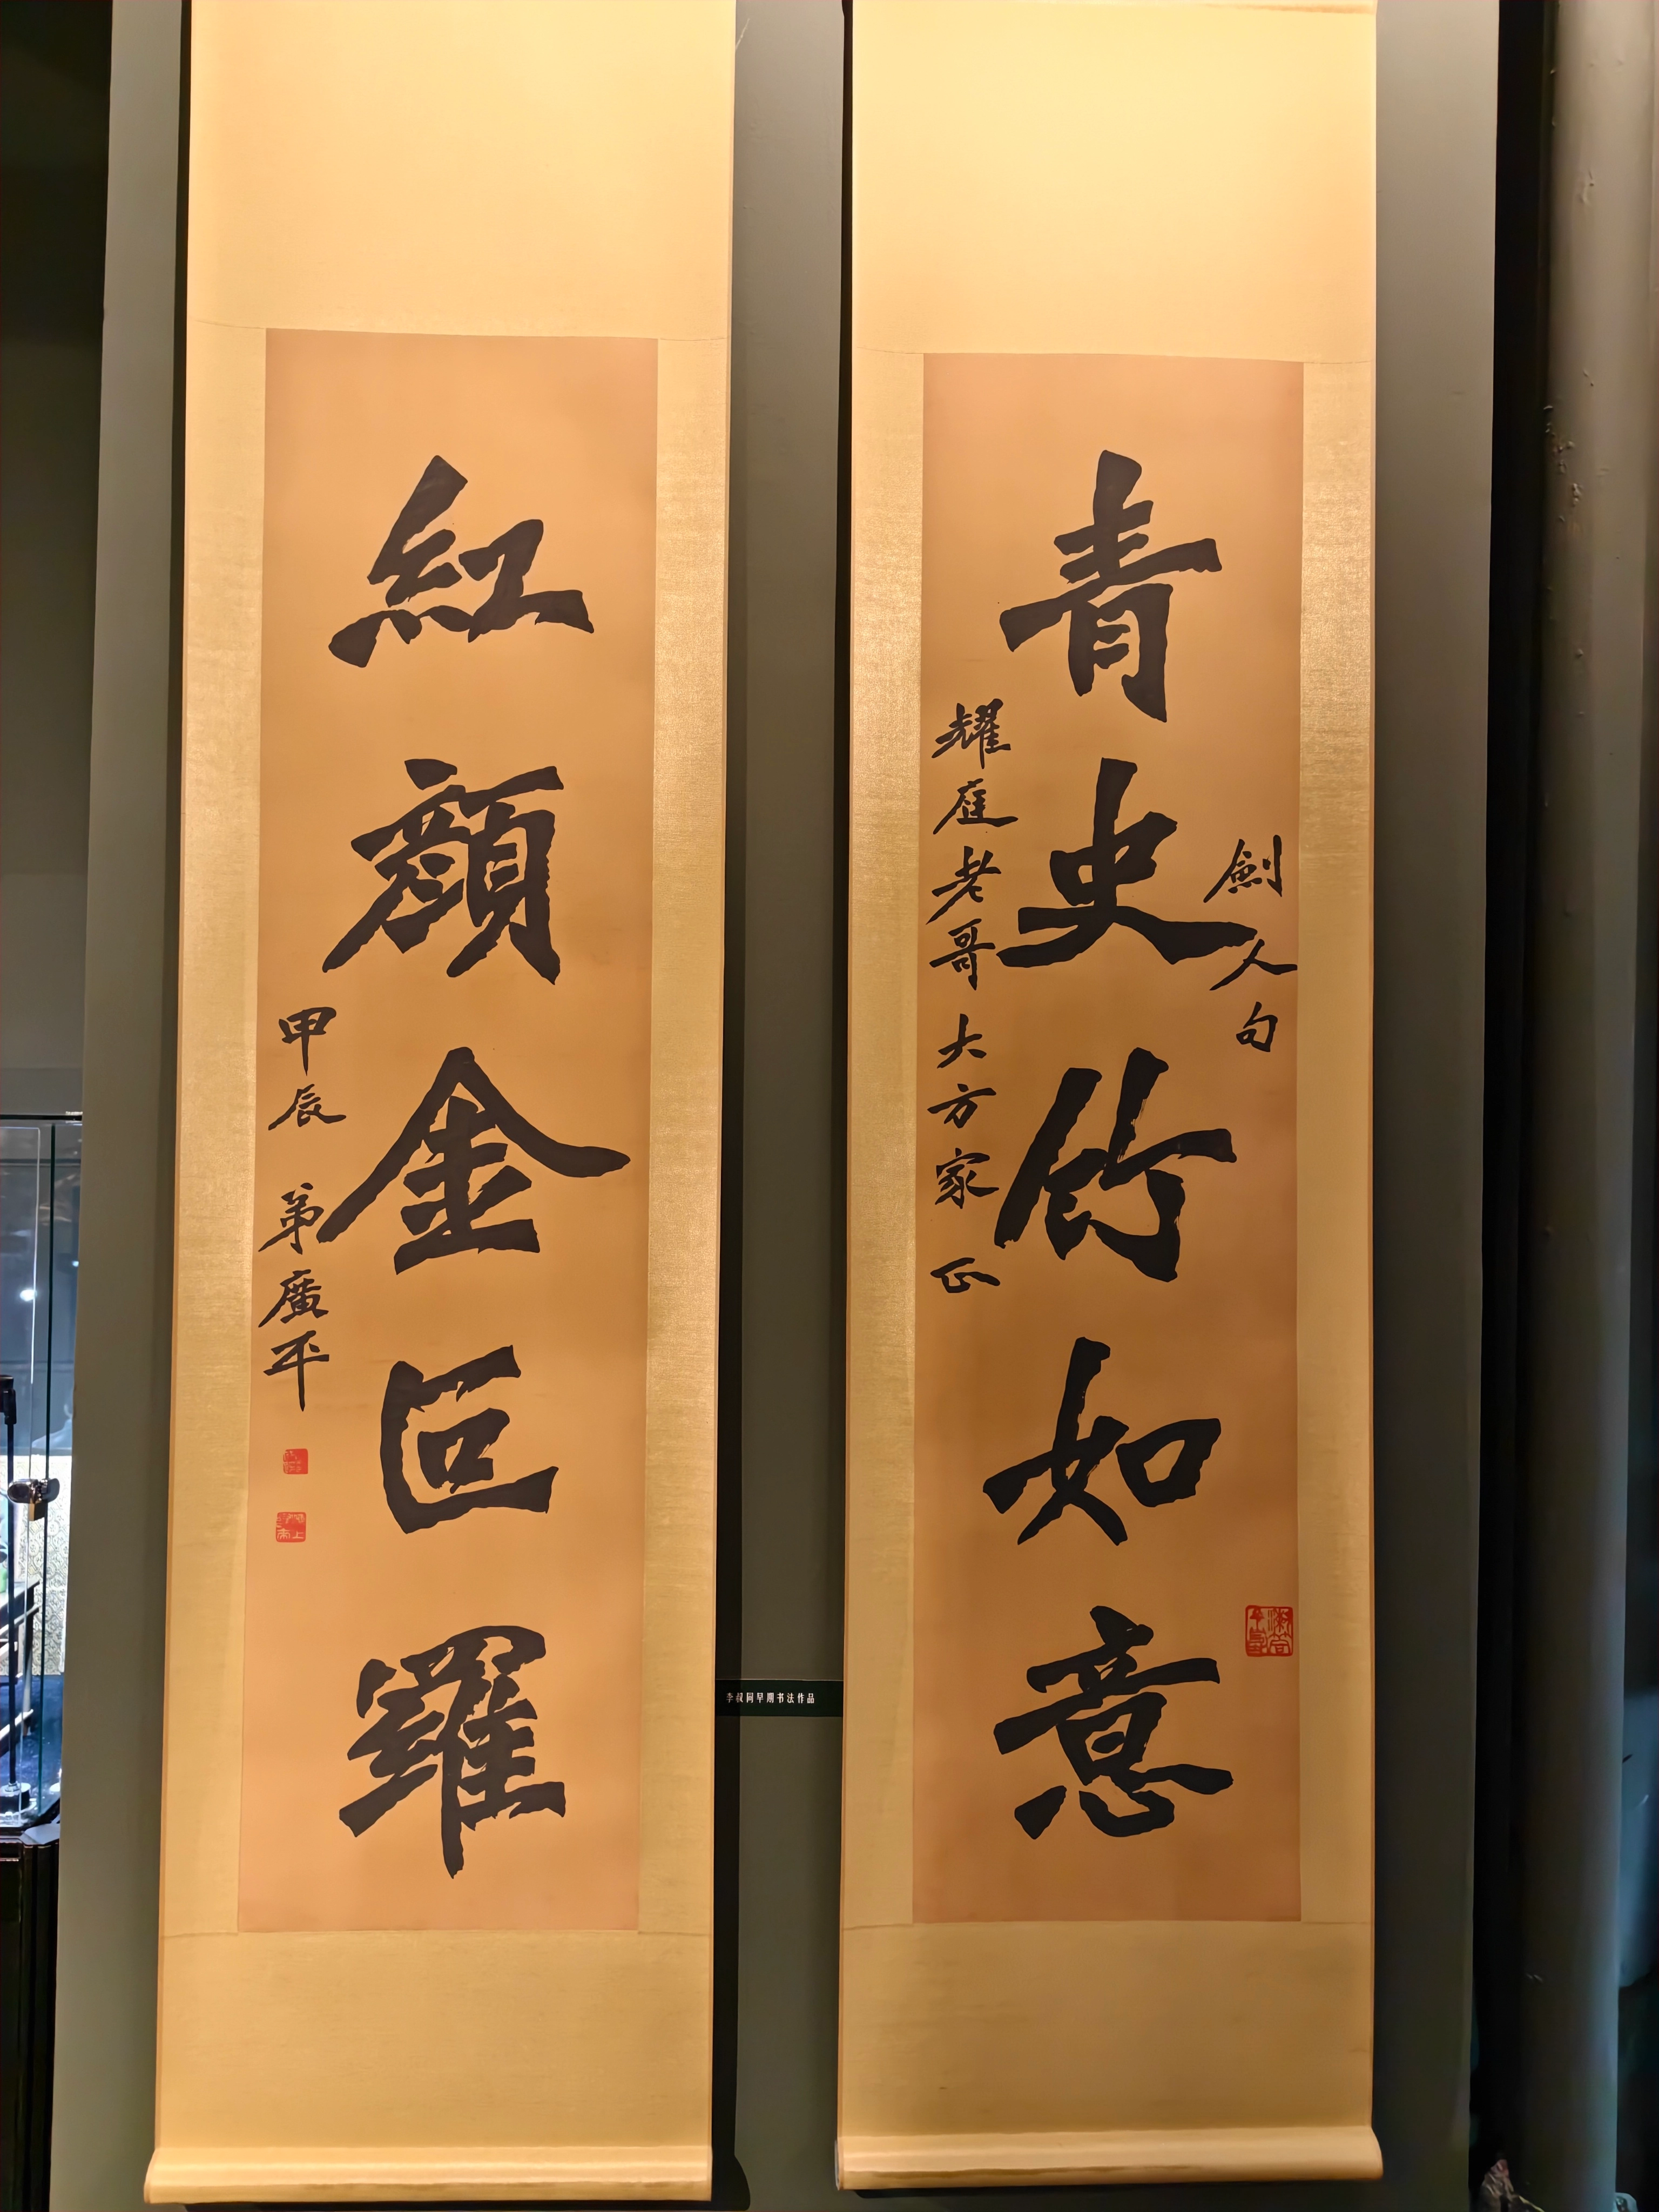 青史竹如意
劍人句
耀庭老哥大方家正
紅顔金叵羅
甲辰 弟廣平
李叔同早期书法作品